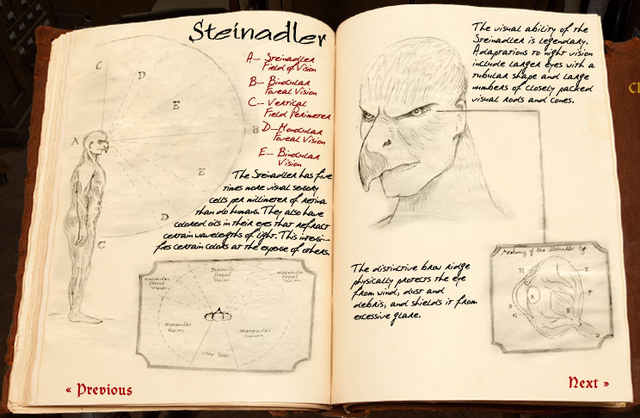 Steinadler
A– Steinadler
Field of Vision
B– Binocular
Foveal Vision
C– Vertical
Field Perimeter
D– Monocular
Foveal Vision
E– Binocular
Vision
The Steinadler has five
times more visual sensory
cells per millimeter of retina
than do humans. They also have
colored oils in their eyes that refract
certain wavelengths of light. This intensi-
fies certain colors at the expense of others.
C
D
E
A
B
E
D
C
Binocular
foveal
vision
Monocular
vision
Monocular
vision
Blind Area
« Previous
The visual ability of the
Steinadler is legendary.
Adaptations to night vision
include larger eyes with a
tubular shape and large
numbers of closely packed
visual rods and cones.
The distinctive brow ridge
physically protects the eye
from wind, dust and
debris, and shields it from
excessive glare.
Anatomy of the Steinadler Eye
Next »